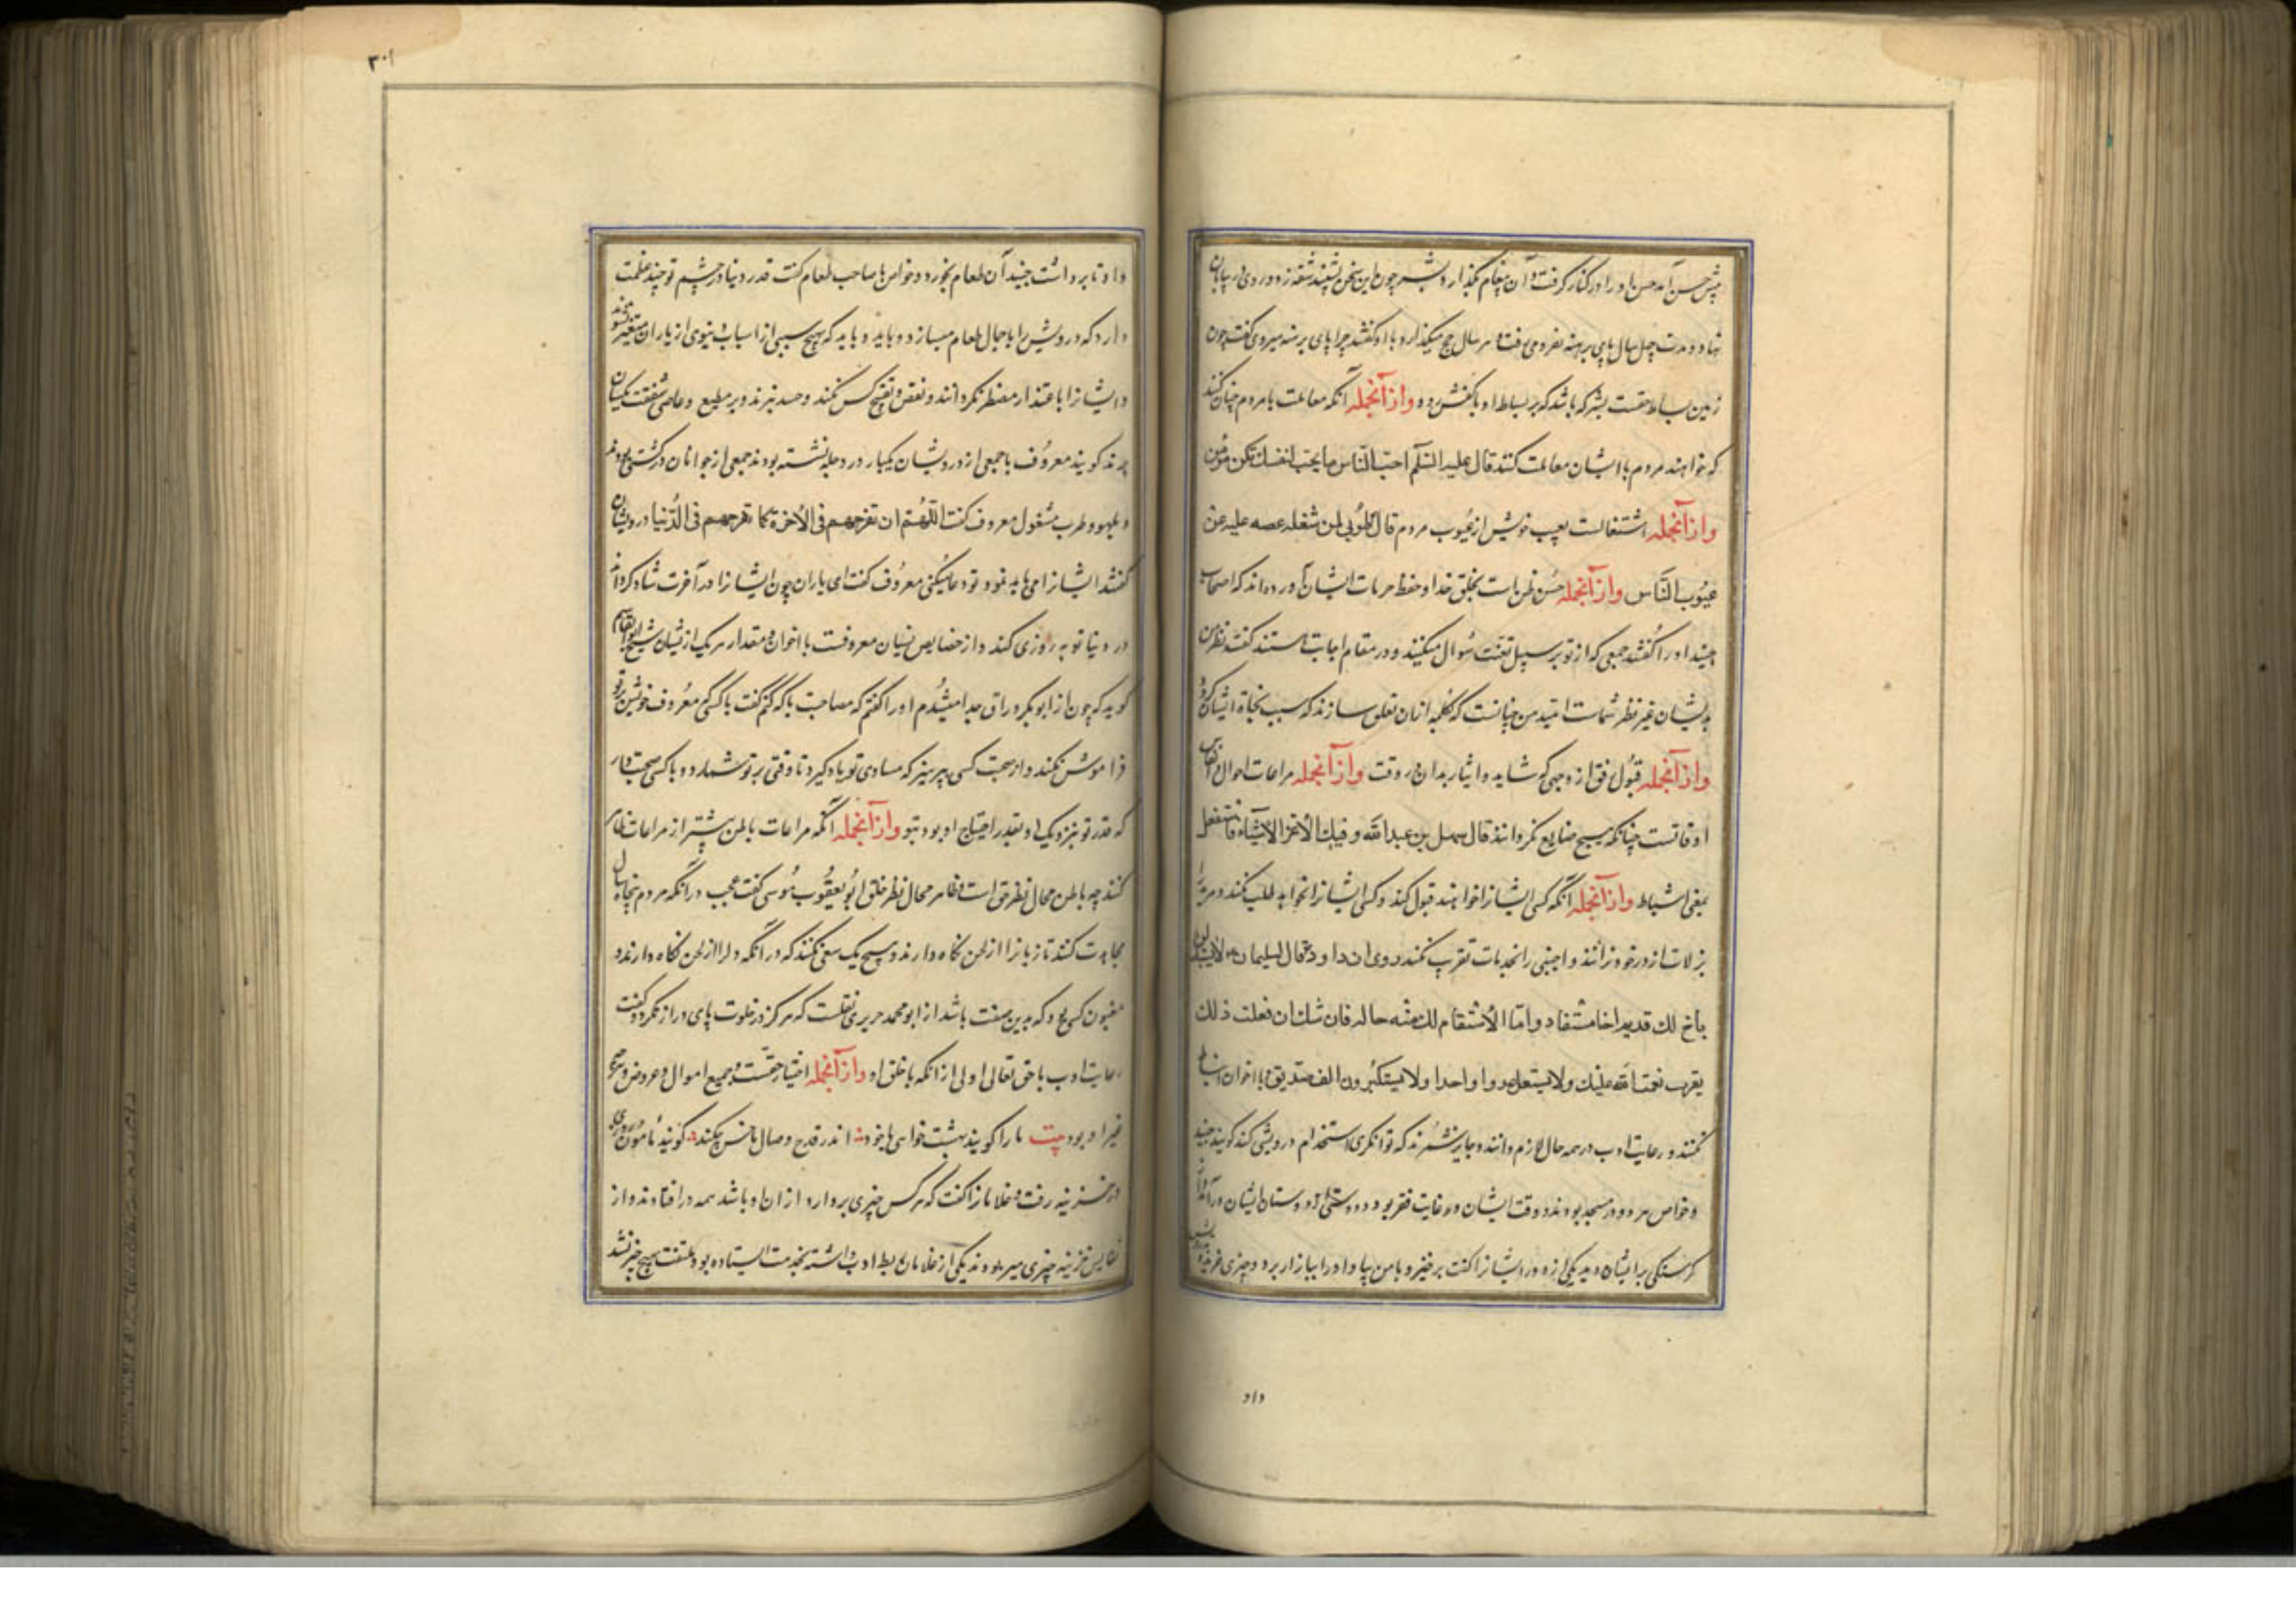 پیش حسن آمد حسن او را در کنار گرفت و آن پیغام بگذارد بشر چون این سخن بشنید شهقه زد و روی در بیابان
نهاد و مدت چهل سال پای برهنه سفر می‌رفت و هر سال حج میگذارد با او گفتند چرا پای برهنه میروی گفت چون
زمین بساط حقست بشر که باشد که بر بساط او با کفش رود وازآنجمله آنکه معاملت با مردم چنان کنند
که خواهند مردم با ایشان معاملت کنند قال علیه السّلم احبّ للنّاس ما یحبّ لنفسک تکن مؤمن
وازآنجمله اشتغالست بعیب خویش از عیوب مردم قال طوُبی لمن شغله عیبه عن
عیُوب النّاس وازآنجمله حُسن ظن است بخلق خدا و حفظ حرمات ایشان آورده‌اند که اصحاب
جنید او را گفتند جمعی که از تو بر سبیل تعنّت سُوال میکنند و در مقام اجابت نیستند گفتند نظر من
بدیشان غیر نظر شماست امّید من چنانست که بکلمهٔ از آن تعلق سازند که سبب نجاة ایشان گردد
وازآنجمله قبُول رفق از وجهی که شاید و ایثار بدان در وقت وازآنجمله مراعات احوال و انفاس
اوقاتست چنانکه هیچ ضایع نگردانند قال سهل بن عبدالله وقتک الأعزّ الأشیاء فاشتغل
بعزّ الاشیاء وازآنجمله آنکه کسی ایشانرا خواهند قبول کنند و کسی ایشانرا نخواهد طلب نکنند و مرید را
بزلات از در خود نرانند و اجنبی را بخدمات تقرب نکنند روی ان داود قال لسلیمان لا تستبدلن
باخ لک قدیم اخا مستفاد و امّا الأستقام لک منه حاله فان شک ان فعلت ذلک
یغرب نعمت الله علیک و لا یستقل عدوا واحدا و لا یستکثرون الف صدیق و با اخوان انبساط
نکنند و رعایت ادب در همه حال لازم دانند و جایز نشمُرند که توانگری استخدام درویشی کند گویند جنید
و خواص هر دو در مسجد بودند و وقت ایشان در غایت فقر بود و دوستی از دوستان ایشان درآمد و اثر
گرسنگی بر ایشان دید یکی از درویشانرا گفت برخیز و با من بیا و او را ببازار برد و چیزی خرید
داد
۳۰۱
داد تا برداشت جنید آن طعام بخورد و خواص با صاحب طعام گفت قدر دنیا در چشم تو چند عظمت
دارد که درویش را با حمال طعام میسازد و باید و باید که بهیچ سببی از اسباب دنیوی از یاران متغیر نشوند
و ایشانرا باعتذار مضطر نگردانند و نقض و تقبیح کس نکنند و حسد نبرند و بر مطیع و عاصی شفقت یکسان
برند گویند معروُف با جمعی از درویشان یکبار در دجله نشسته بودند جمعی از جوانان در کشتی بودند
و بلهو و طرب مشغول معروف گفت اللّهُمّ ان تفرحهم فی الأخرة کما تفرحهم فی الدُّنیا درویشان
گفتند ایشانرا می‌باید نمود تو دعا میکنی معروُف گفت ای یاران چون ایشانرا در آخرت شاد گرداند
در دنیا توبه روزی کند و از خصایص نسیان معروفست با اخوان و مقدار هر یک از ایشان شیخ ابوالقاسم
گوید که چون از ابوبکر وراق جدا میشُدم او را گفتم که مصاحبت با که کنم گفت با کسی که معرُوف خویش بر تو
فراموش نکند و از صحبت کسی بپرهیز که مساوی تو یاد گیرد تا وقتی بر تو شمارد و با کسی صحبت دار
که قدر تو نزدیک او بقدر احتیاج او بود بتو وازآنجمله آنکه مراعات باطن بیشتر از مراعات ظاهر
کنند چه باطن محال نظر حق است و ظاهر محال نظر خلق ابوُ یعقُوب سُوسی گفت عجب در آنکه مردم پنجاه سال
مجاهدت کنند تا زبانرا از لحن نگاه دارند و هیچ یک سعی نکنند که در آنکه دلرا از لحن نگاه دارند و
مغبون کسی بود که بدین صفت باشد از ابومحمد حریری نقلست که هرگز در خلوت پای دراز نکرد و گفت
رعایت ادب با حق تعالی اولی از آنکه با خلق او وازآنجمله اختیار حقست بر جمیع اموال و عروض و هرچه
غیر او بود بیت ما را گویند بهشت خواهی یا خود اندر قدح وصال ما خس چکند گویند مأمون روزی
در خزینه رفت و غلامانرا گفت که هرکس چیزی بردارد از آن او باشد همه در افتادند و از
نفایس خزینه چیزی میربودند یکی از غلامان بط ادب داشته بخدمت ایستاده بود ملتفت هیچ چیز نشد